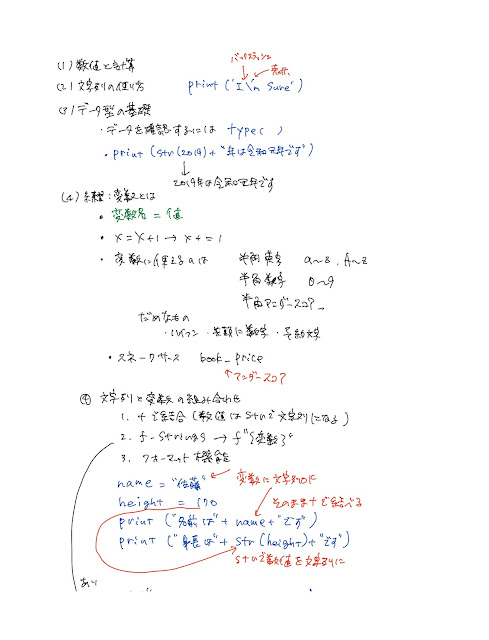 (1) 数値と計算
バックスラッシュ
(2) 文字列の使い方 print('I\'m Sure')
(3) データ型の基礎
・データを確認するには type( )
・print(str(2019)+"年は令和元年です")
2019年は令和元年です
(4) 変数とは
・変数名 = 値
・x = x+1 → x += 1
・変数に使えるのは 半角英字 a~z, A~Z
半角数字 0~9
半角アンダースコア _
だめなもの
・ハイフン ・先頭に数字 ・予約文字
・スネークケース book_price
アンダースコア
④ 文字列と変数の組み合わせ
1. +で結合(数値はstrで文字列になる)
2. f-strings → f"{変数}"
3. フォーマット機能
name = "佐藤" 変数に文字列は
height = 170 そのまま+で結べる
print("名前は"+name+"です")
print("身長は"+str(height)+"です")
strで数値を文字列に
あり